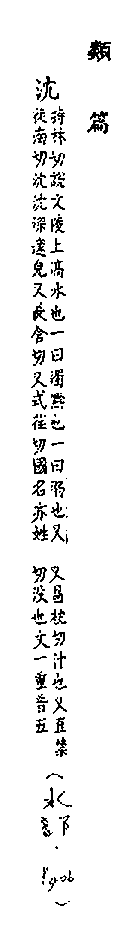 類篇
沈
持林切說文陵上滈水也一曰濁黕也一曰弱也又
徒南切沈沈深邃皃又長含切又式荏切國名亦姓
又昌枕切汁也又直禁
切没也文一重音五
(水部下.